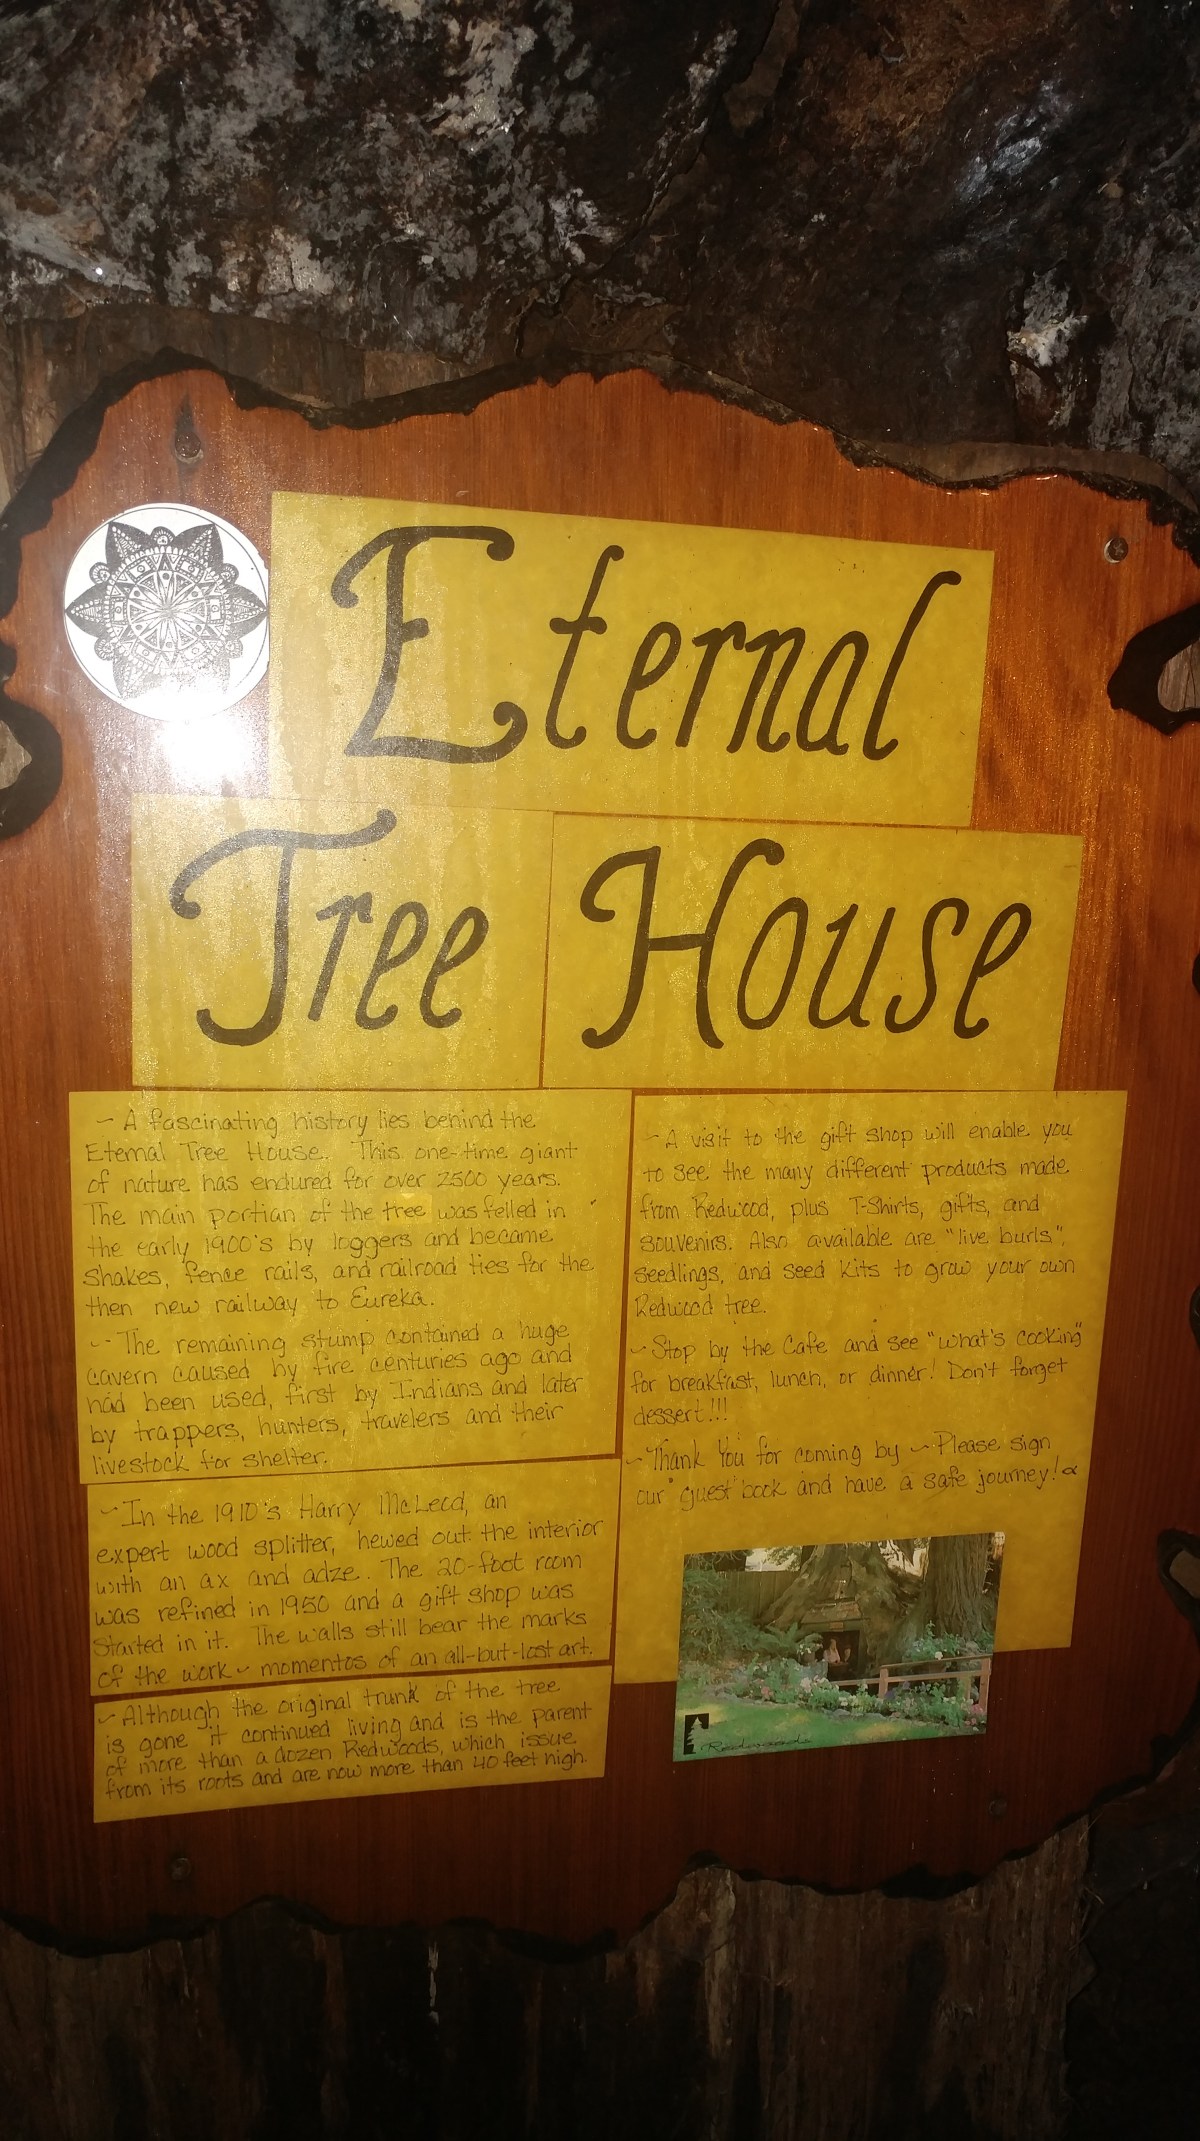 Eternal
Tree House
~ A fascinating history lies behind the
Eternal Tree House. This one-time giant
of nature has endured for over 2500 years.
The main portian of the tree was felled in
the early 1900's by loggers and became
shakes, fence rails, and railroad ties for the
then new railway to Eureka.
~ The remaining stump contained a huge
cavern caused by fire centuries ago and
had been used, first by Indians and later
by trappers, hunters, travelers and their
livestock for shelter.
~ In the 1910's Harry McLeod, an
expert wood splitter, hewed out the interior
with an ax and adze. The 20-foot room
was refined in 1950 and a gift shop was
started in it. The walls still bear the marks
of the work ~ momentos of an all-but-lost art.
~ Although the original trunk of the tree
is gone it continued living and is the parent
of more than a dozen Redwoods, which issue
from its roots and are now more than 40 feet high.
~ A visit to the gift shop will enable you
to see the many different products made
from Redwood, plus T-Shirts, gifts, and
souvenirs. Also available are "live burls",
seedlings, and seed kits to grow your own
Redwood tree.
~ Stop by the Cafe and see "what's cooking"
for breakfast, lunch, or dinner! Don't forget
dessert!!!
~ Thank You for coming by ~ Please sign
our guest book and have a safe journey!
Redwoods